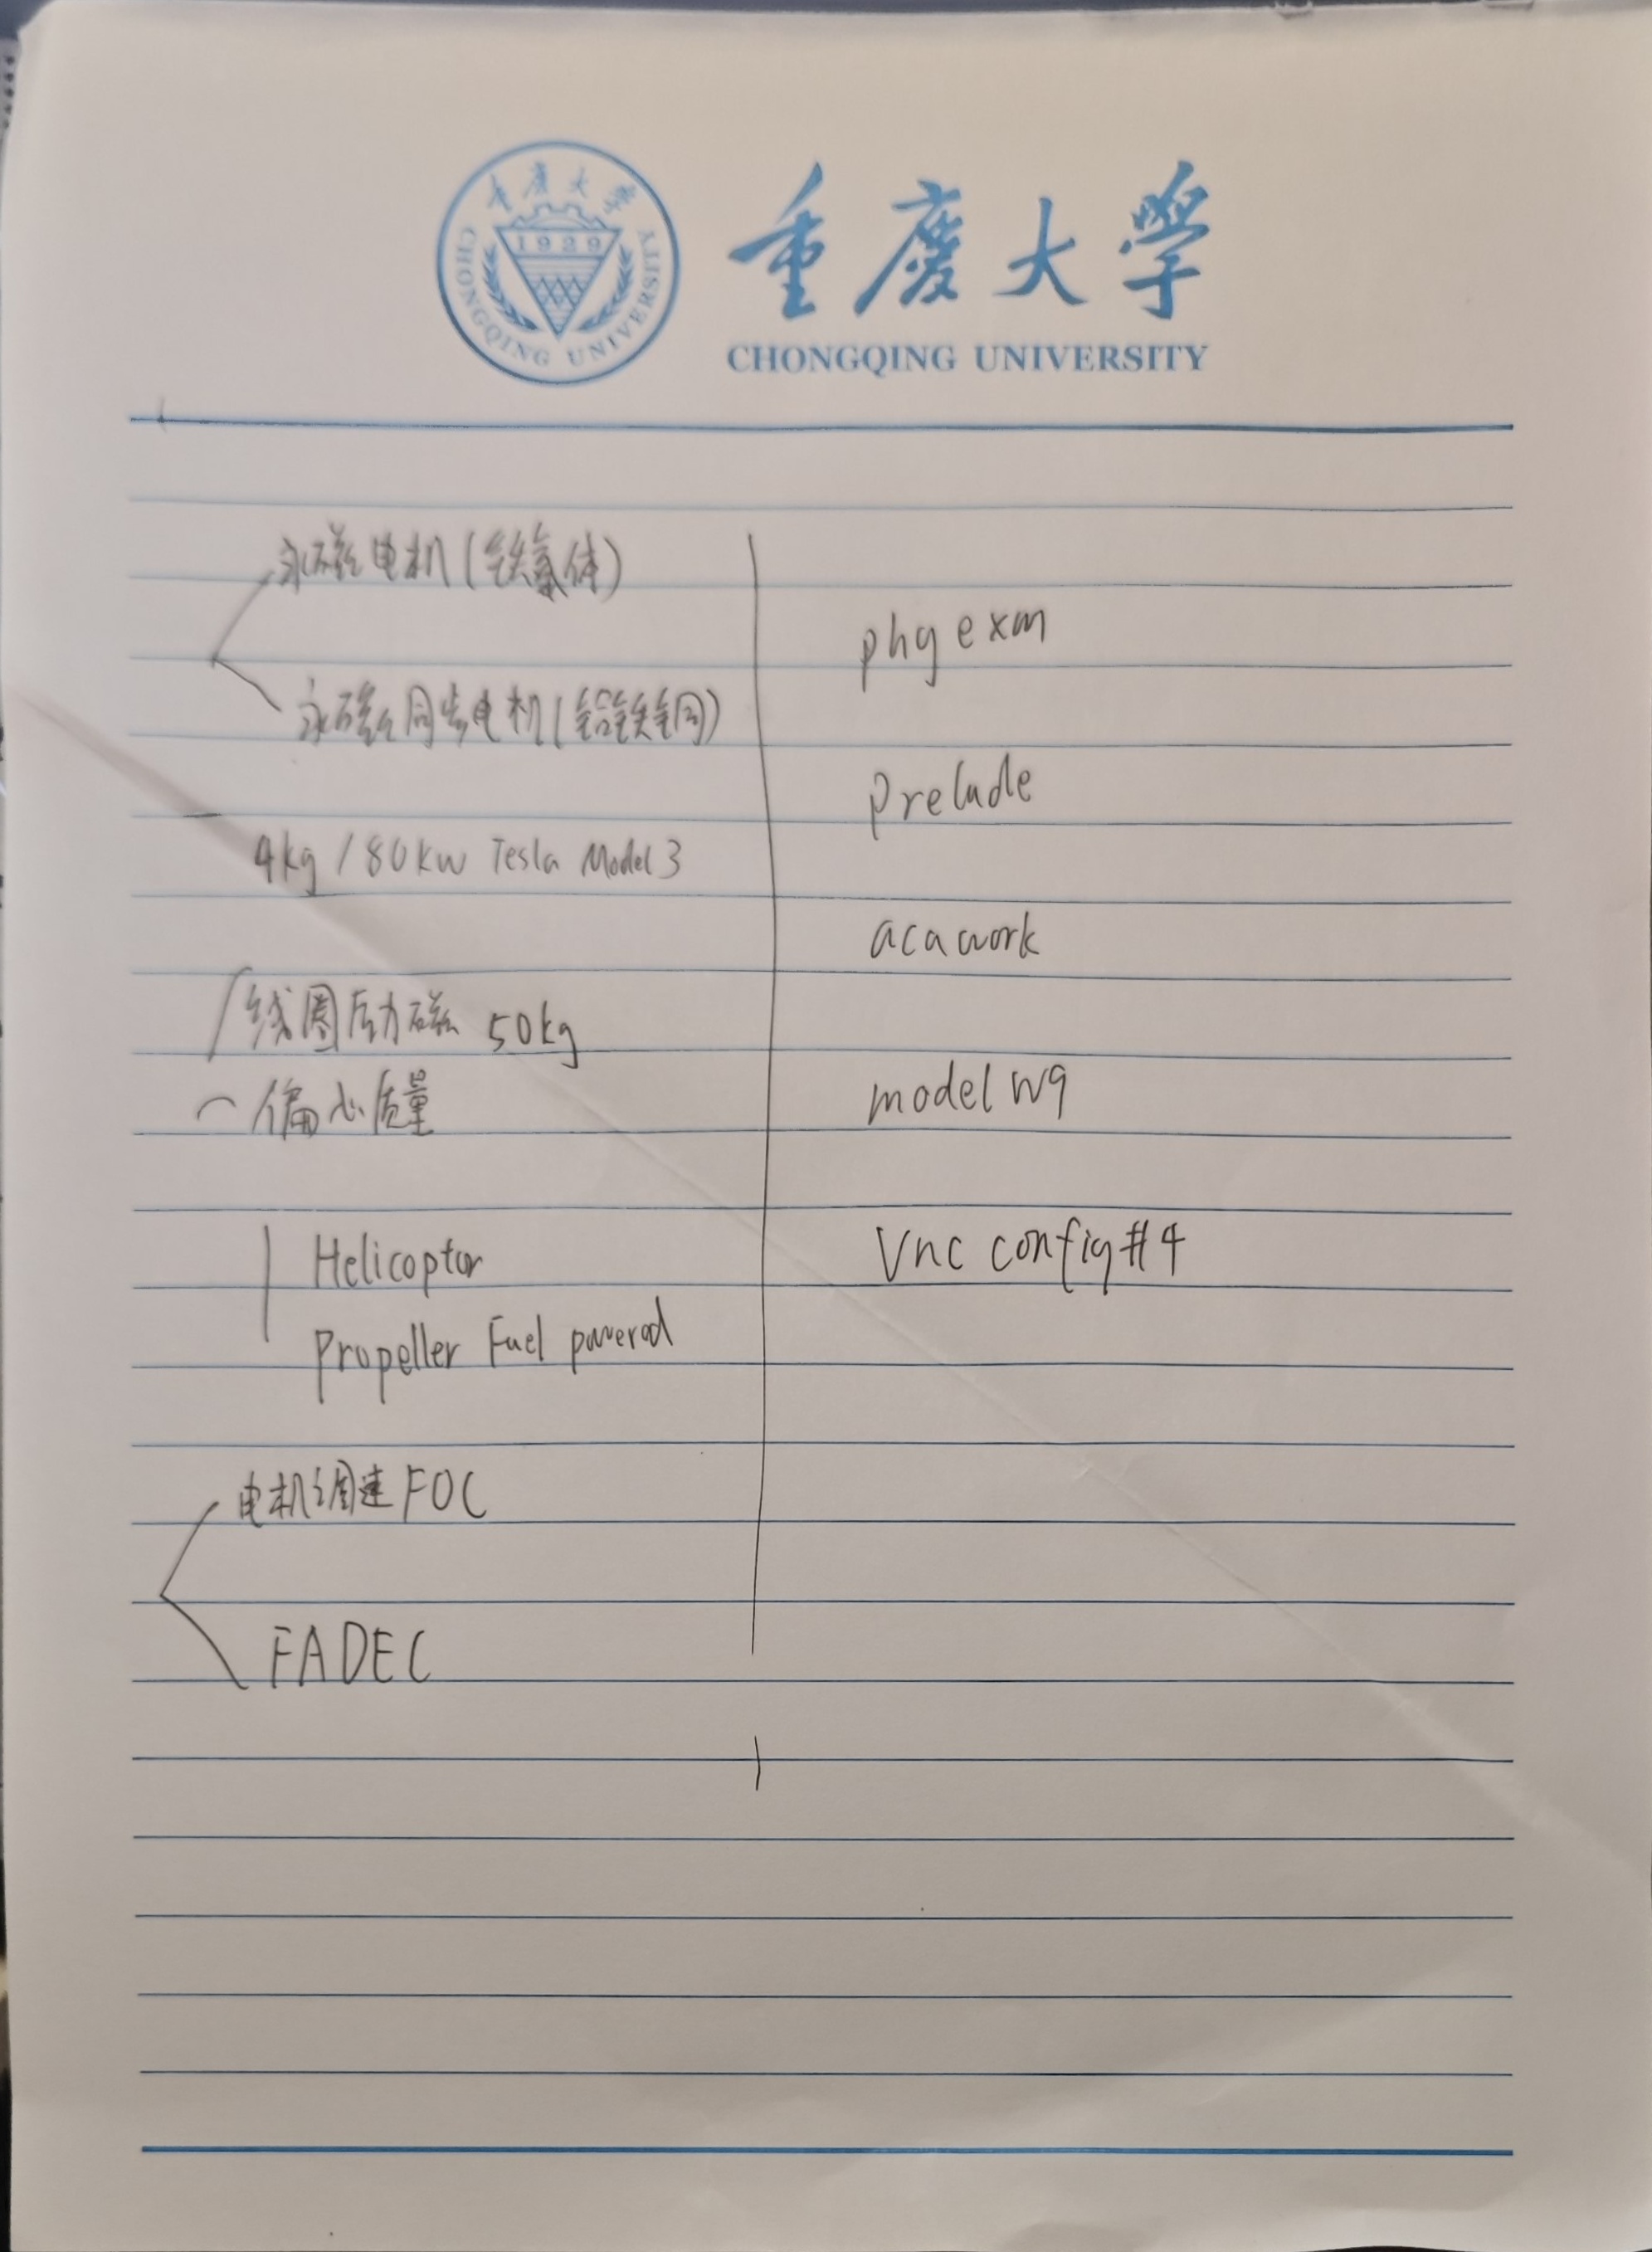 重慶大學
CHONGQING UNIVERSITY
1929
重慶大學
CHONGQING UNIVERSITY
永磁电机(铁氧体)
永磁同步电机(铝铁铜)
4kg/80kw Tesla Model 3
线圈励磁 50kg
偏心质量
Helicoptor
Propeller Fuel powered
电机调速FOC
FADEC
phy exm
Prelude
aca work
model W9
Vnc config#4